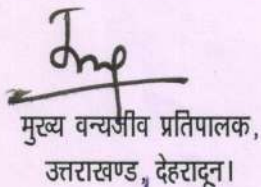 मुख्य वन्यजीव प्रतिपालक,
उत्तराखण्ड, देहरादून।